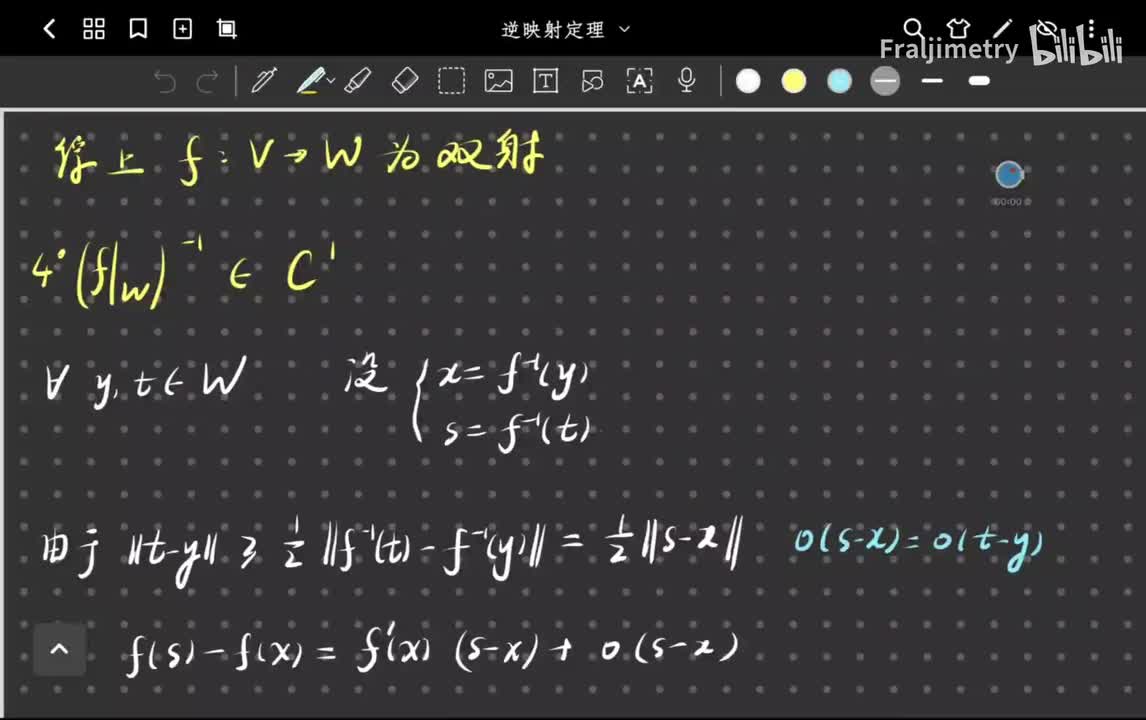 逆映射定理
Fraljimetry bilibili
综上 f : V → W 为双射
00:00
4° (f|_W)^{-1} ∈ C^1
∀ y, t ∈ W 设 { x = f^{-1}(y)
s = f^{-1}(t)
由于 ‖t-y‖ ≥ 1/2 ‖f^{-1}(t) - f^{-1}(y)‖ = 1/2 ‖s-x‖ o(s-x) = o(t-y)
f(s) - f(x) = f'(x) (s-x) + o(s-x)